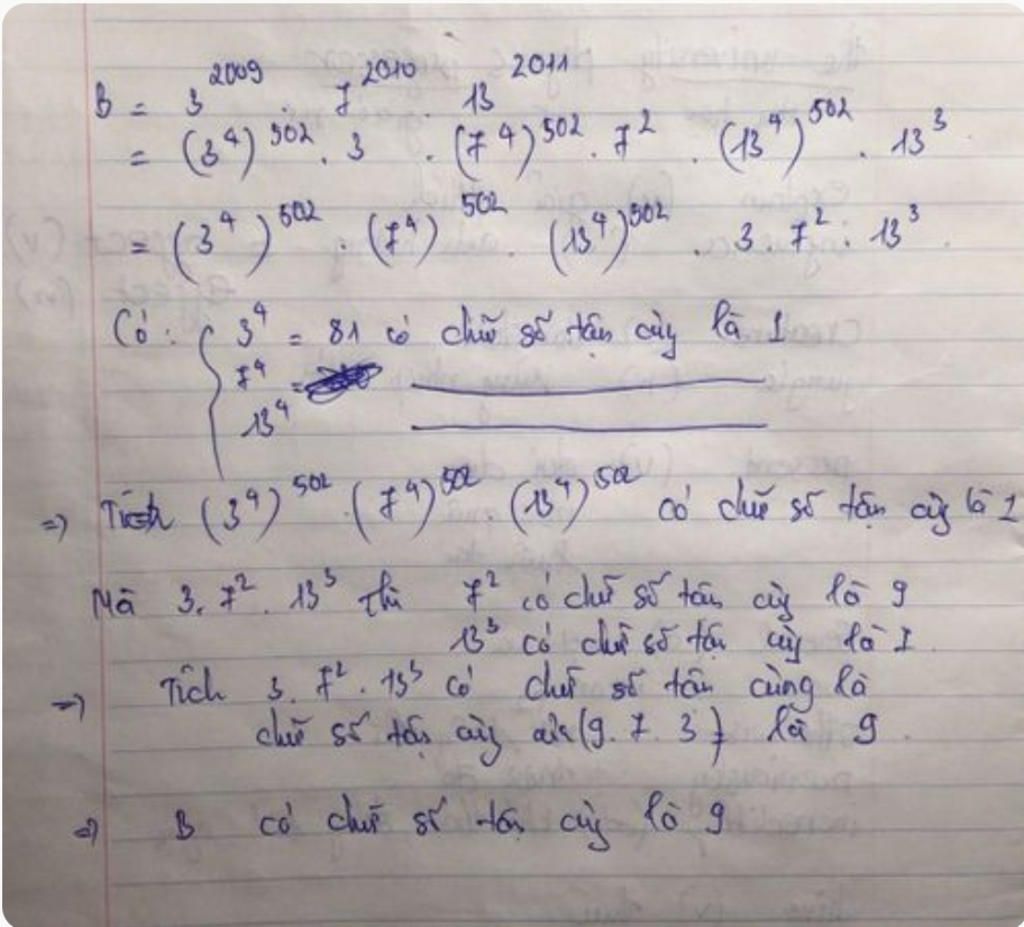 B = 3^2009 . 7^2010 . 13^2011
= (3^4)^502 . 3 . (7^4)^502 . 7^2 . (13^4)^502 . 13^3
= (3^4)^502 . (7^4)^502 . (13^4)^502 . 3 . 7^2 . 13^3 .
Có : { 3^4 = 81 có chữ số tận cùng là 1
7^4 =
13^4
=> Tích (3^4)^502 . (7^4)^502 . (13^4)^502 có chữ số tận cùng là 1
Mà 3. 7^2 . 13^3 thì 7^2 có chữ số tận cùng là 9
13^3 có chữ số tận cùng là
=> Tích 3. 7^2 . 13^3 có chữ số tận cùng là
chữ số tận cùng của (9. 7. 3) là 9 .
=> B có chữ số tận cùng là 9